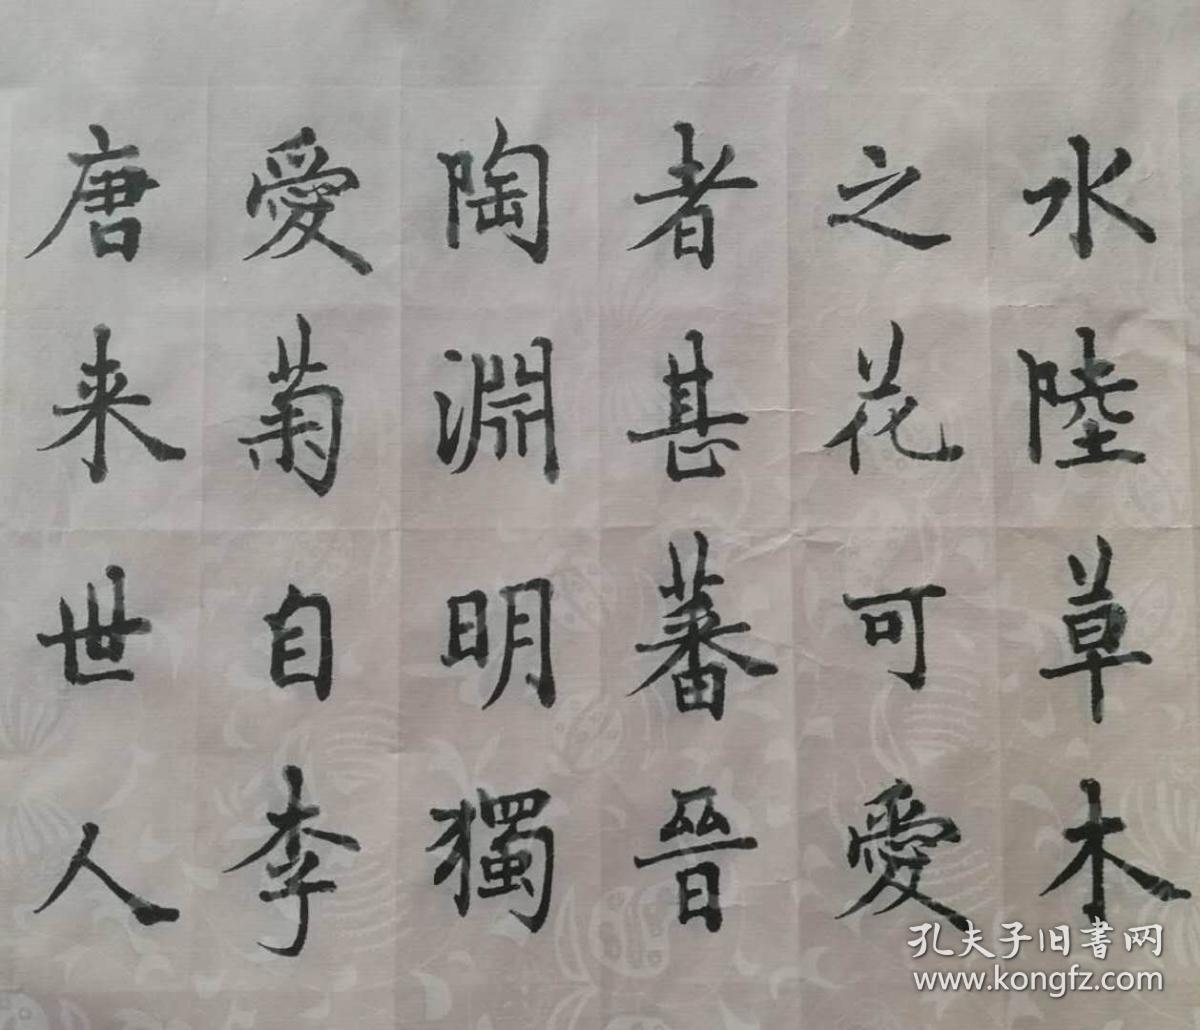 水陸草木
之花可愛
者甚蕃晉
陶淵明獨
愛菊自李
唐来世人
孔夫子旧書网
www.kongfz.com